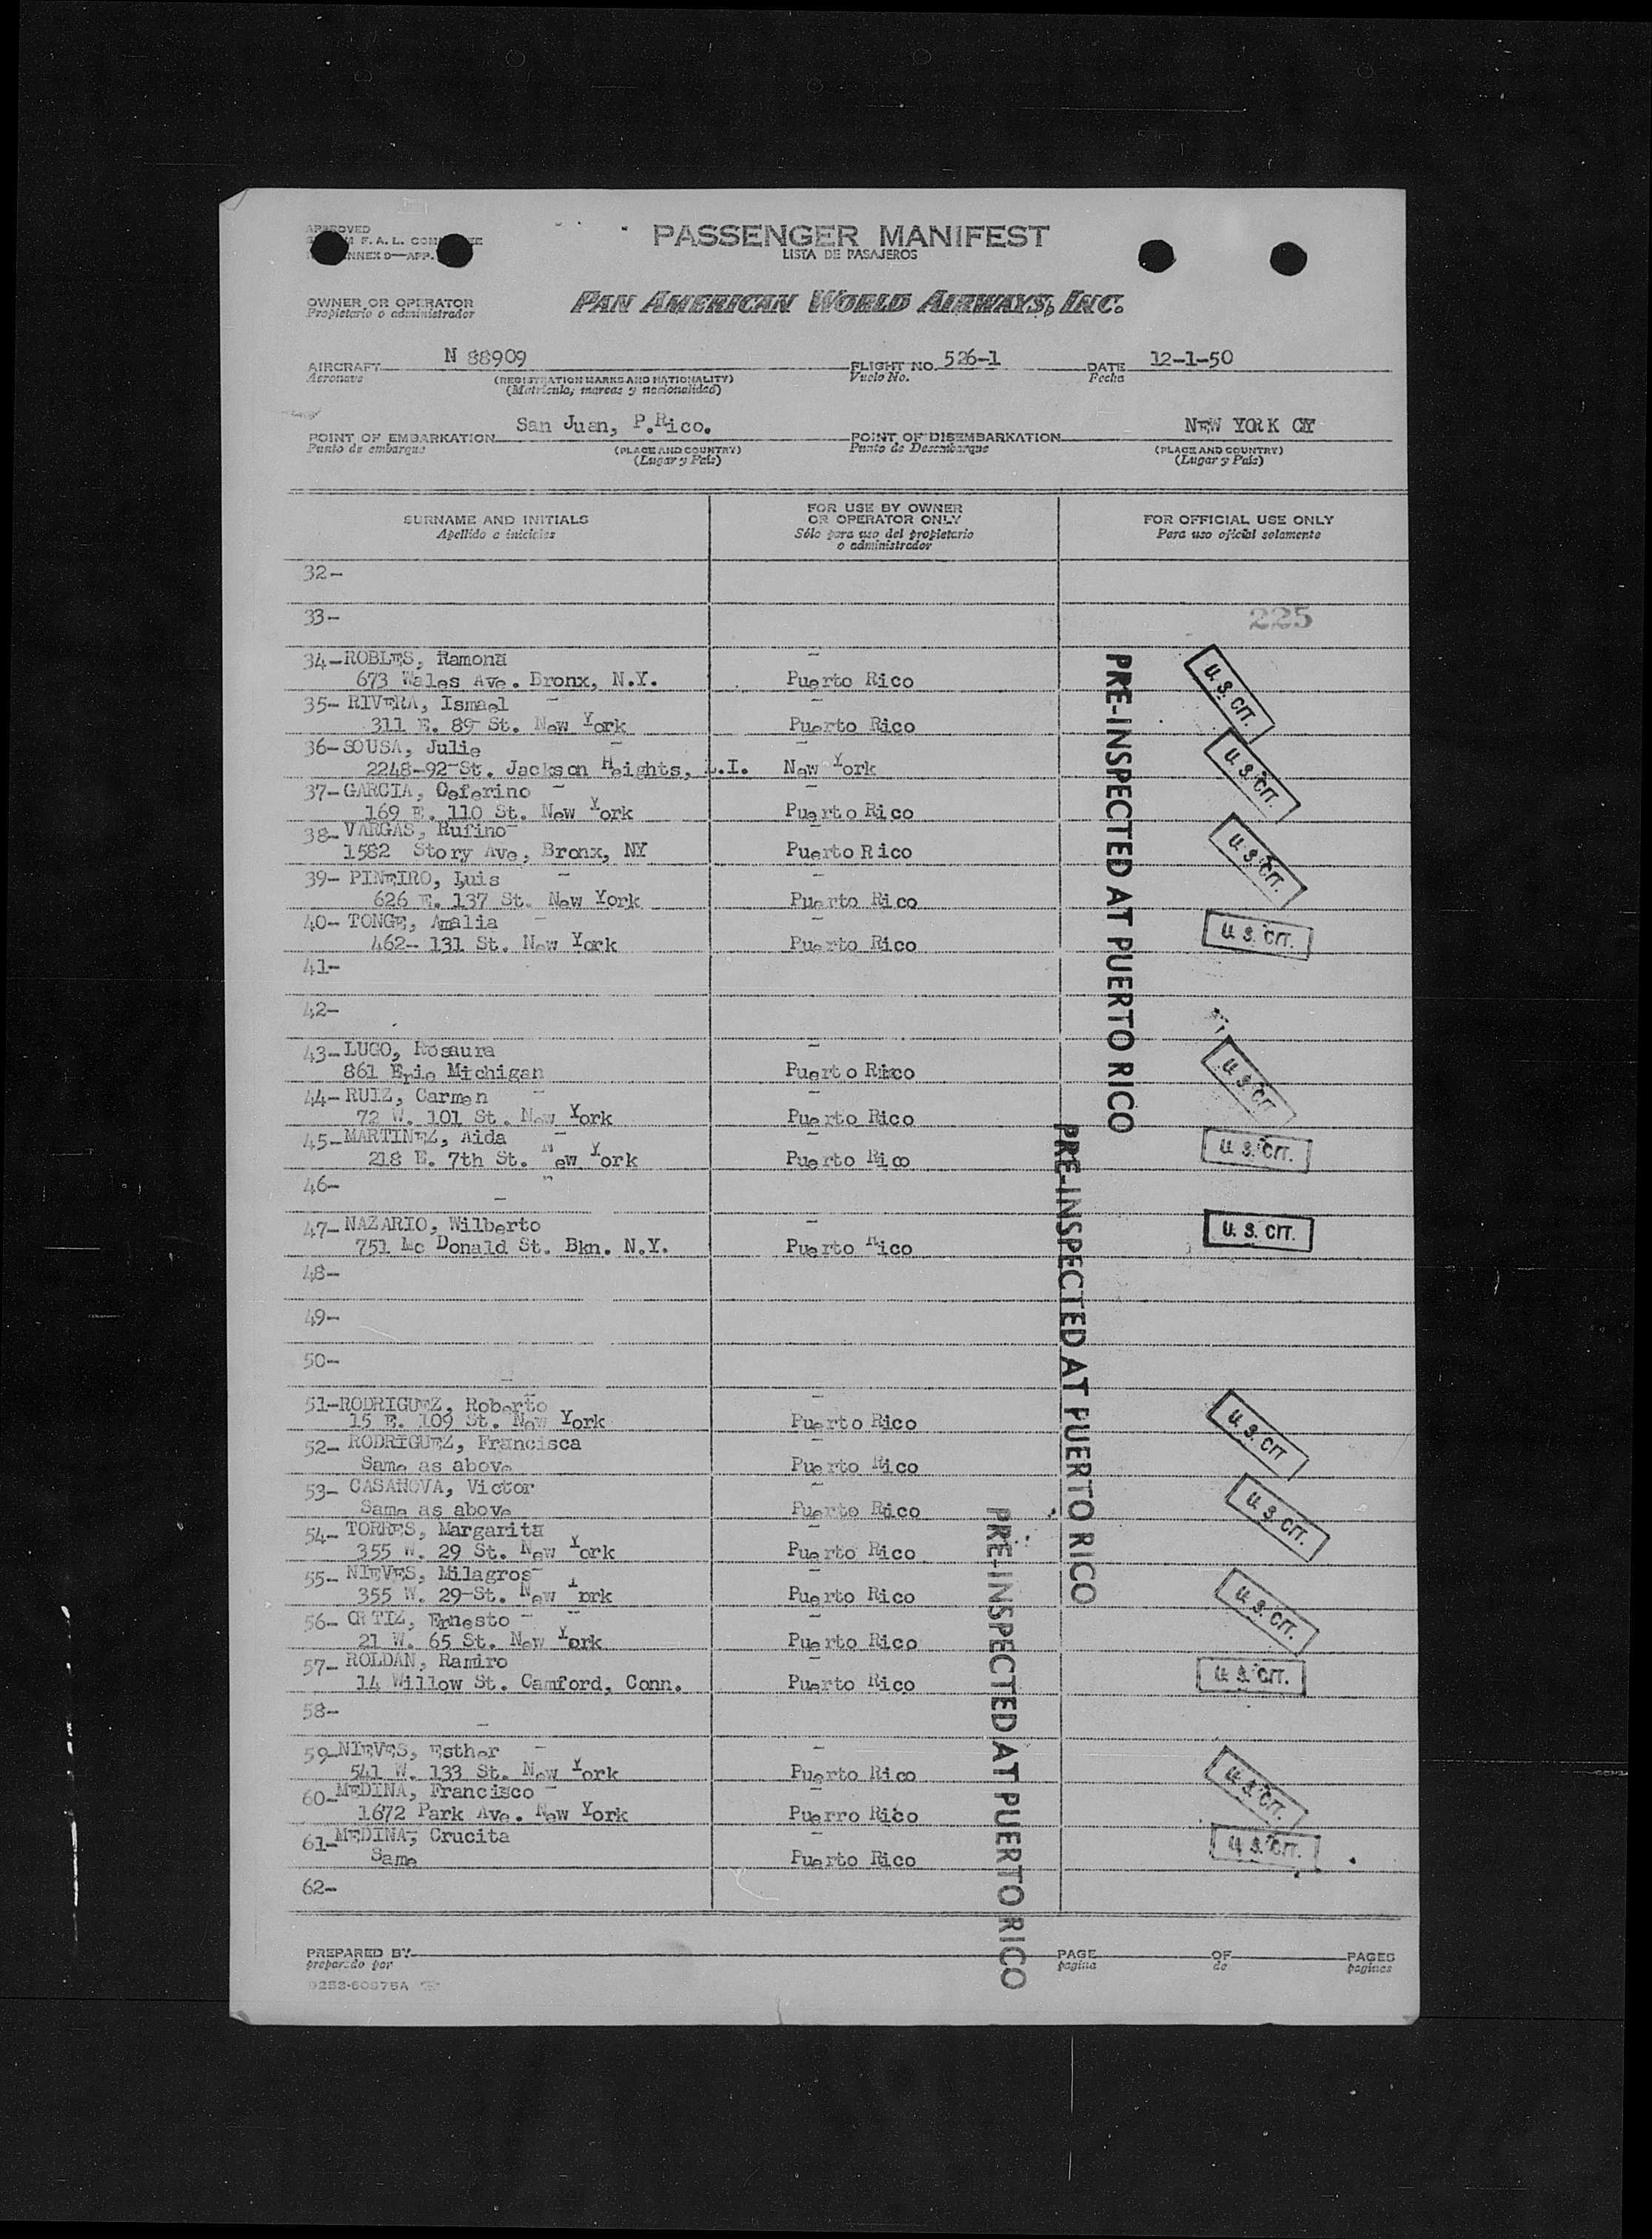 APPROVED
F. A. L.
ANNEX 9—APP.
PASSENGER MANIFEST
LISTA DE PASAJEROS
OWNER OR OPERATOR
Propietario o administrador
PAN AMERICAN WORLD AIRWAYS, INC.
AIRCRAFT N 88909 FLIGHT NO. 526-1 DATE 12-1-50
Aeronave (REGISTRATION MARKS AND NATIONALITY) Vuelo No. Fecha
(Matrícula, marcas y nacionalidad)
POINT OF EMBARKATION San Juan, P.Rico. POINT OF DISEMBARKATION NEW YORK CITY
Punto de embarque (PLACE AND COUNTRY) Punto de Desembarque (PLACE AND COUNTRY)
(Lugar y País) (Lugar y País)
SURNAME AND INITIALS FOR USE BY OWNER OR OPERATOR ONLY FOR OFFICIAL USE ONLY
Apellido e iniciales Sólo para uso del propietario o administrador Para uso oficial solamente
32-
33- 225
34- ROBLES, Ramona
673 Wales Ave. Bronx, N.Y. Puerto Rico U. S. CIT.
35- RIVERA, Ismael
311 E. 89 St. New York Puerto Rico
36- SOUSA, Julie
2248-92-St. Jackson Heights, L.I. New York U. S. CIT.
37- GARCIA, Ceferino
169 E. 110 St. New York Puerto Rico
38- VARGAS, Rufino
1582 Story Ave, Bronx, NY Puerto Rico U. S. CIT.
39- PINEIRO, Luis
626 E. 137 St. New York Puerto Rico
40- TONGE, Amalia
462- 131 St. New York Puerto Rico U. S. CIT.
41-
42-
43- LUGO, Rosaura
861 Erie Michigan Puerto Rico U. S. CIT.
44- RUIZ, Carmen
72 W. 101 St. New York Puerto Rico
45- MARTINEZ, Aida
218 E. 7th St. New York Puerto Rico U. S. CIT.
46-
47- NAZARIO, Wilberto
751 Mc Donald St. Bkn. N.Y. Puerto Rico U. S. CIT.
48-
49-
50-
51- RODRIGUEZ, Roberto
15 E. 109 St. New York Puerto Rico U. S. CIT.
52- RODRIGUEZ, Francisca
Same as above Puerto Rico
53- CASANOVA, Victor
Same as above Puerto Rico U. S. CIT.
54- TORRES, Margarita
355 W. 29 St. New York Puerto Rico
55- NIEVES, Milagros
355 W. 29-St. New York Puerto Rico U. S. CIT.
56- ORTIZ, Ernesto
21 W. 65 St. New York Puerto Rico
57- ROLDAN, Ramiro
14 Willow St. Camford, Conn. Puerto Rico U. S. CIT.
58-
59- NIEVES, Esther
541 W. 133 St. New York Puerto Rico U. S. CIT.
60- MEDINA, Francisco
1672 Park Ave. New York Puerro Rico
61- MEDINA, Crucita
Same Puerto Rico U. S. CIT.
62-
PRE-INSPECTED AT PUERTO RICO
PRE-INSPECTED AT PUERTO RICO
PRE-INSPECTED AT PUERTO RICO
PREPARED BY PAGE OF PAGES
preparado por pagina de paginas